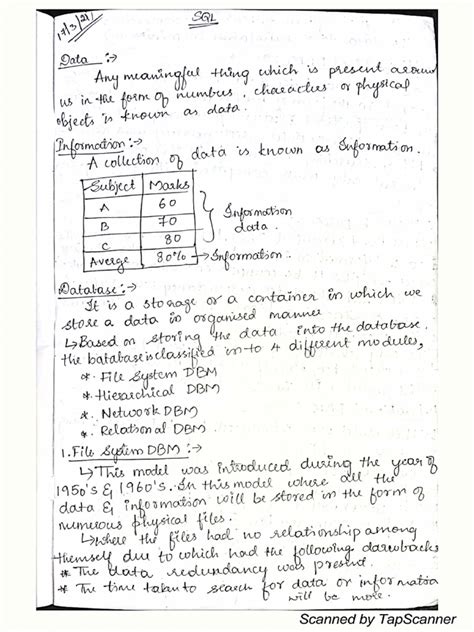 17/3/21
SQL
Data :→
Any meaningful thing which is present around
us in the form of numbers, characters or physical
objects is known as data.
Information :→
A collection of data is known as Information.
Subject | Marks
A | 60
B | 70
C | 80
Averge | 80% → Information.
Information
data.
Database :→
It is a storage or a container in which we
store a data in organised manner
↳ Based on storing the data into the database
the batabase is classified in to 4 different modules,
*. File System DBM
*. Hierarchical DBM
*. Network DBM
*. Relational DBM
1. File System DBM :→
↳ This model was introduced during the year of
1950's & 1960's. In this model where all the
data & information will be stored in the form of
numerous physical files.
↳ Where the files had no relationship among
themself due to which had the following darwbacks
* The data redundancy was present.
* The time taken to search for data or information
will be more.
Scanned by TapScanner